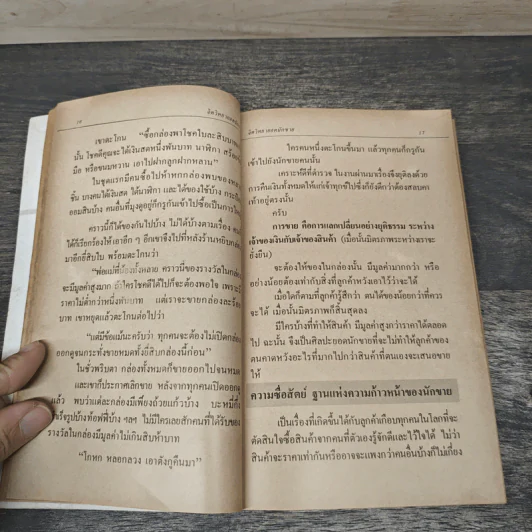 ๑๖
เขาตะโกน “ซื้อกล่องพาโชคใบละสิบบาท
นั้น โชคดีคุณจะได้เงินสดหนึ่งพันบาท นาฬิกา
มือ หรือขนมหวาน เอาไปฝากลูกฝากหลาน”
ในชุดแรกมีคนซื้อไปห้าหกกล่องพบของ
ชิ้น บางคนได้เงินสด ได้นาฬิกา และได้ของใช้บ้าง
ออมสินบ้าง คนอื่นที่มุงดูอยู่ก็กรูกันเข้าไปซื้อเป็นการใหญ่
คราวนี้ก็ได้ของกันไปบ้าง ไม่ได้บ้างตามเรื่อง
ได้ก็เรียกร้องให้เอาอีก ๆ อีกเขาจึงไปที่หลังร้านหยิบกล่อง
มาอีกยี่สิบใบ พร้อมตะโกนว่า
“พ่อแม่พี่น้องทั้งหลาย คราวนี้ของรางวัลในกล่อง
จะมีมูลค่าสูงมาก ถ้าใครโชคดีได้ไปก็จะต้องพอใจ เพราะ
ราคาไม่ต่ำกว่าหนึ่งพันบาท แต่เราจะขายกล่องละร้อย
บาท เขาหยุดแล้วตะโกนต่อไปว่า
“แต่มีข้อแม้นะครับว่า ทุกคนจะต้องไม่เปิดกล่อง
ออกดูจนกระทั่งขายหมดทั้งยี่สิบกล่องนี้ก่อน”
ในชั่วพริบตา กล่องทั้งหมดก็ขายออกไปจนหมด
และเขาก็ประกาศเลิกขาย หลังจากทุกคนเปิดออกดู
แล้ว พบว่าแต่ละกล่องมีเพียงถ้วยแก้วบ้าง บะหมี่กึ่ง
สำเร็จรูปบ้างท้อฟฟี่บ้าง ฯลฯ ไม่มีใครเลยสักคนที่ได้รับของ
รางวัลในกล่องมีมูลค่าไม่เกินสิบห้าบาท
“โกหก หลอกลวง เอาตังกูคืนมา”
๑๗
ใครคนหนึ่งตะโกนขึ้นมา แล้วทุกคนก็กรูกัน
เข้าไปยังนักขายคนนั้น
เคราะห์ดีที่ตำรวจ ในงานผ่านมาเรื่องจึงยุติลงด้วย
การคืนเงินทั้งหมดให้แก่เจ้าทุกข์ไปซึ่งก็ยังดีกว่าต้องสอบคา
เท้าอยู่ตรงนั้น
ครับ
การขาย คือการแลกเปลี่ยนอย่างยุติธรรม ระหว่าง
เจ้าของเงินกับเจ้าของสินค้า (เมื่อนั้นมิตรภาพระหว่างเราจะ
ยั่งยืน)
จะต้องให้ของในกล่องนั้น มีมูลค่ามากกว่า หรือ
อย่างน้อยต้องเท่ากับสิ่งที่ลูกค้าหวังเอาไว้ว่าจะได้
เมื่อใดก็ตามที่ลูกค้ารู้สึกว่า ตนได้ของน้อยกว่าที่ควร
จะได้ เมื่อนั้นมิตรภาพก็สิ้นสุดลง
มีใครบ้างที่ทำให้สินค้า มีมูลค่าสูงกว่าราคาได้ตลอด
ไป ฉะนั้น จึงเป็นศิลปะยอดนักขายที่จะไม่ทำให้ลูกค้าของ
ตนคาดหวังอะไรที่มากไปกว่าสินค้าที่ตนเองจะเสนอขาย
ให้
ความซื่อสัตย์ ฐานแห่งความก้าวหน้าของนักขาย
เป็นเรื่องที่เกิดขึ้นได้กับลูกค้าเกือบทุกคนในโลกที่จะ
ตัดสินใจซื้อสินค้าจากคนที่ตัวเองรู้จักดีและไว้ใจได้ ไม่ว่า
สินค้าจะราคาเท่ากันหรืออาจจะแพงกว่าคนอื่นบ้างก็ไม่เกี่ยง